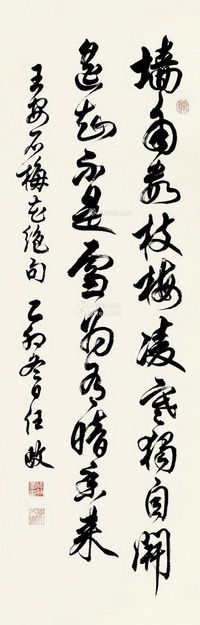 墙角数枝梅凌寒独自开
遥知不是雪为有暗香来
王安石梅花绝句 乙卯冬日任政